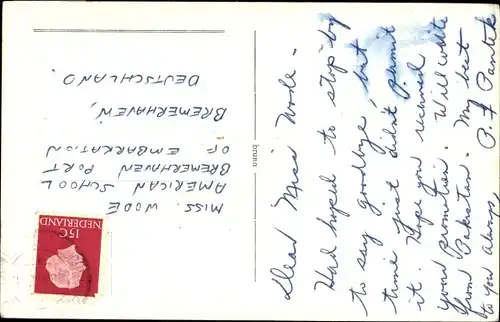 Dear Miss Wode -
Had hoped to stop by
to say goodbye, but
time just didn't permit
it. Hope you received
your promotion. Will write
from Pakistan. My best
to you always,
bruna
MISS. WODE
AMERICAN SCHOOL
BREMERHAVEN PORT
OF EMBARKATION
BREMERHAVEN,
DEUTSCHLAND.
15C
NEDERLAND